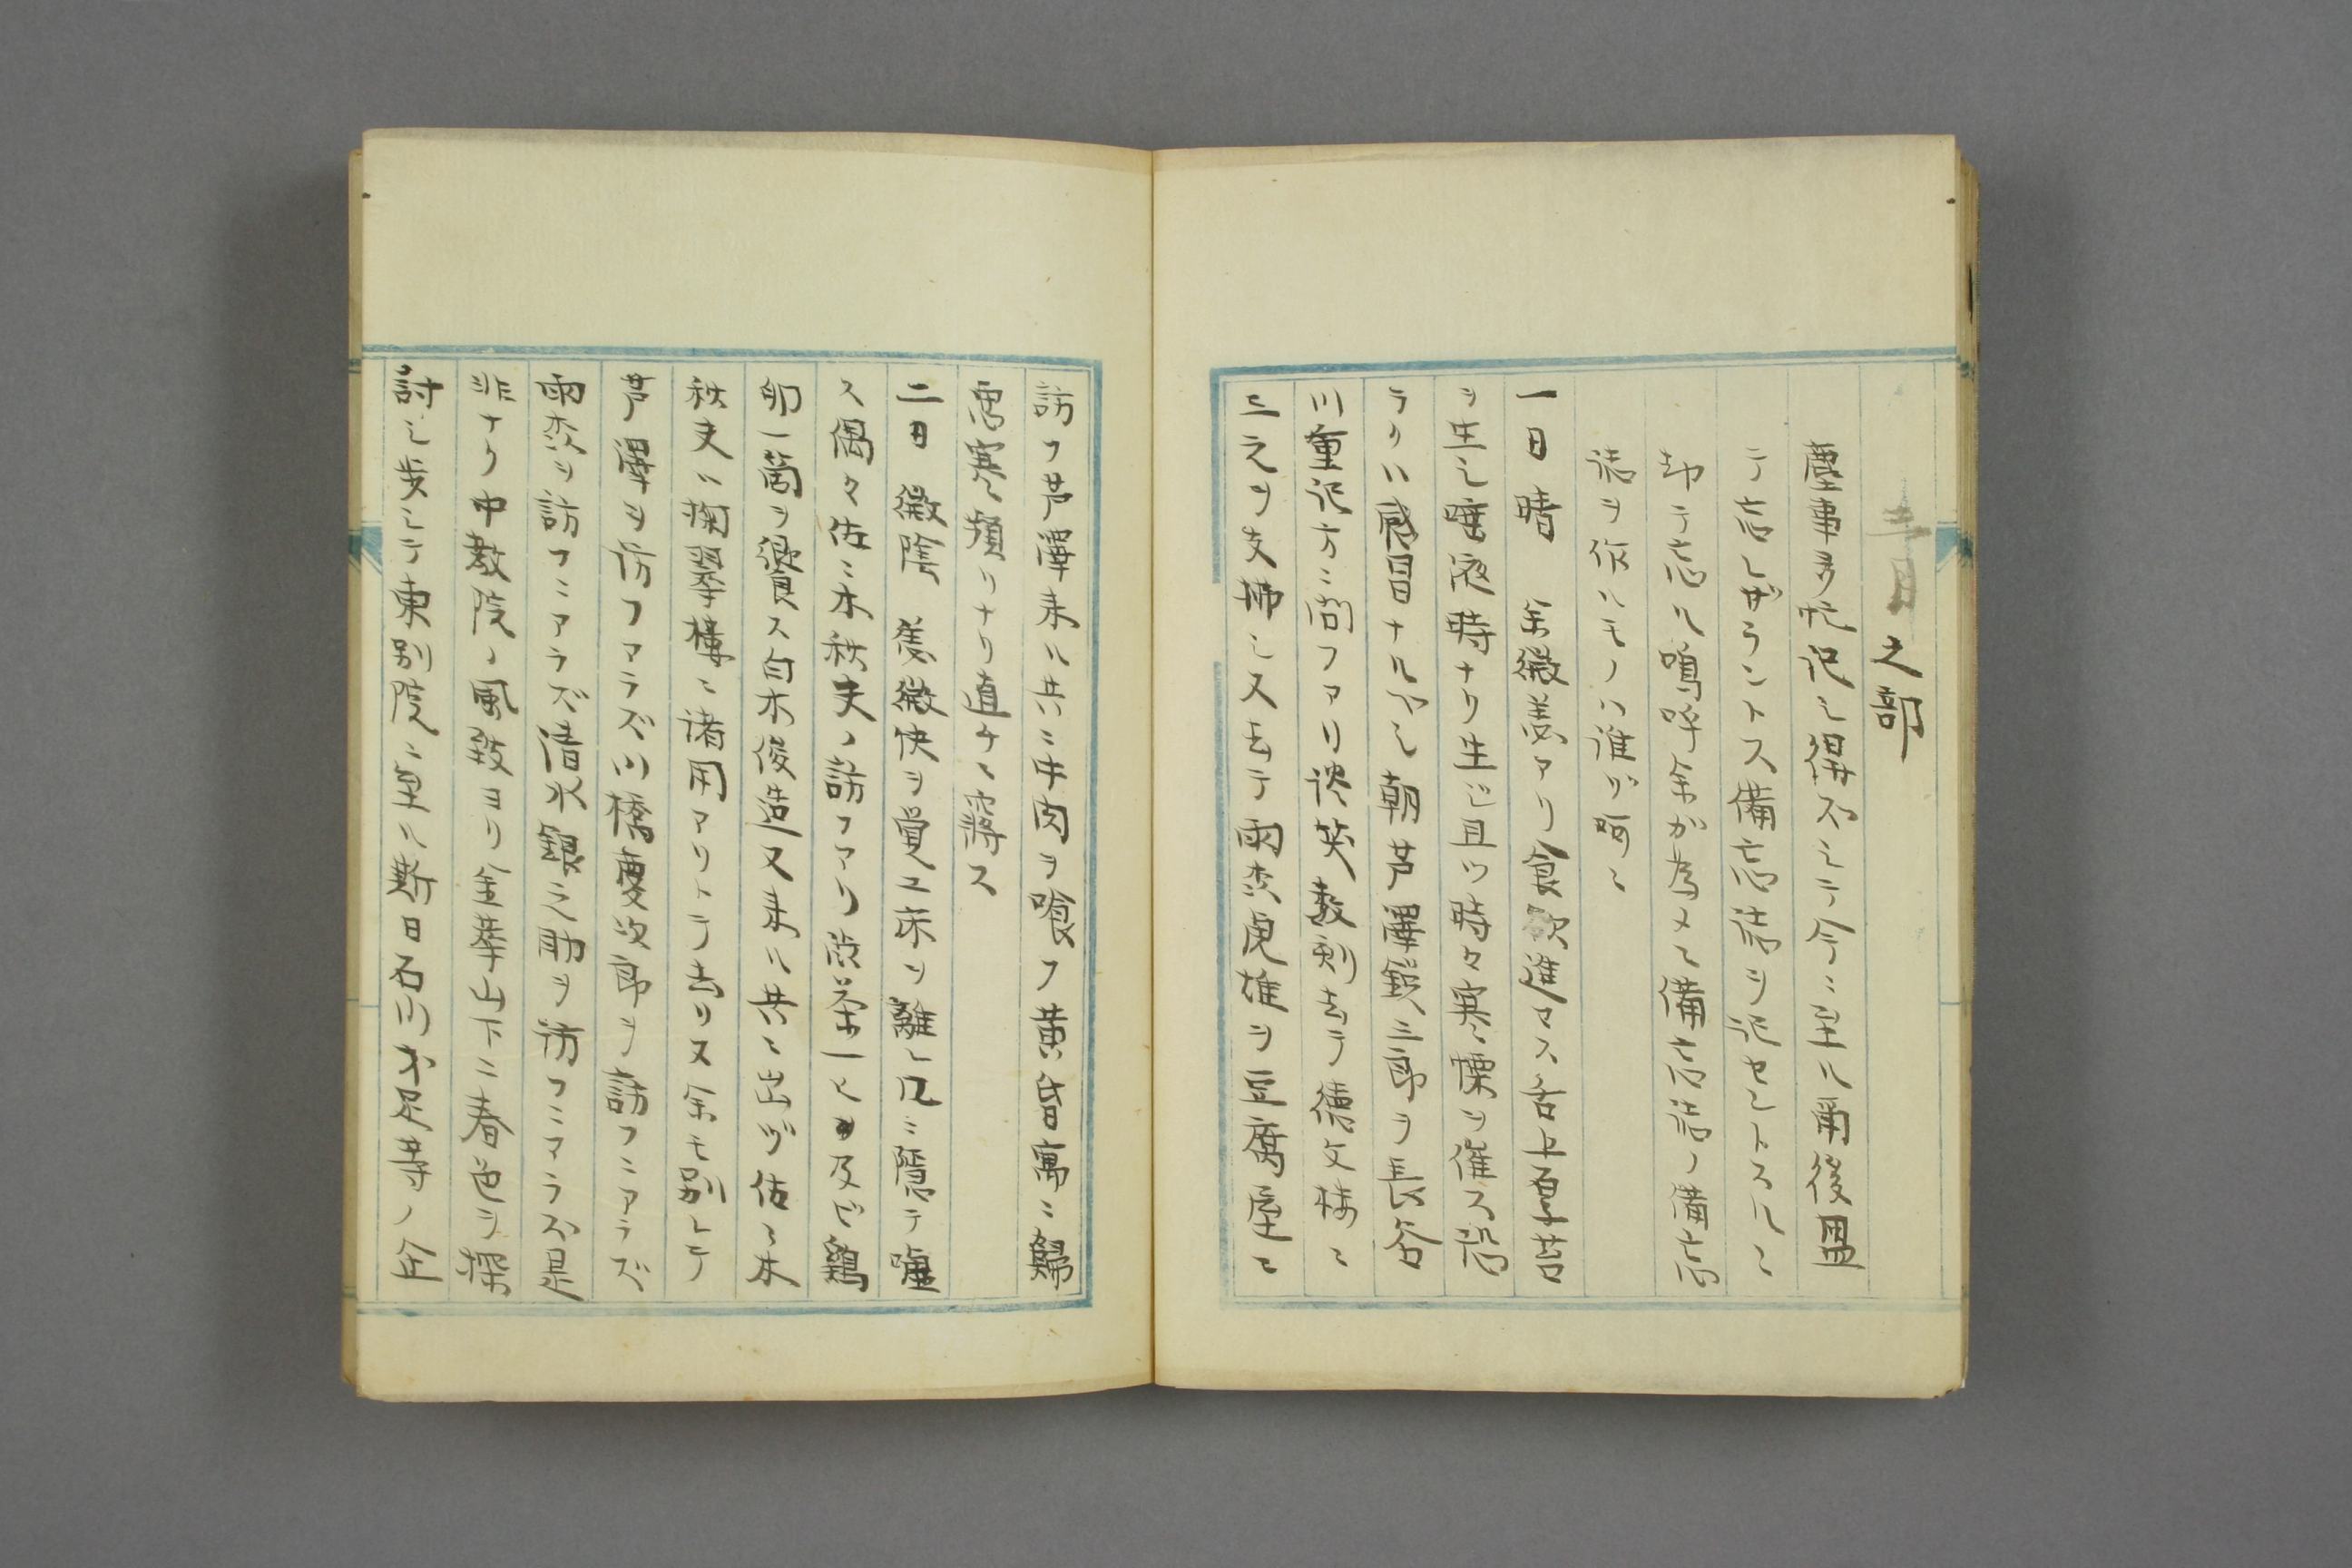 之部
塵事多忙記シ得ズシテ今ニ至ル爾後盟
テ忘レザラントス備忘誌ヲ記セントスルニ
却テ忘ル嗚呼余が為メニ備忘誌ノ備忘
誌ヲ作ルモノハ誰ゾ呵々
一日 晴 余微恙アリ食欲進マス舌上厚苔
ヲ生シ唾液時ナク生ジ且ツ時々寒慄ヲ催ス恐
ラクハ感冒ナルベシ朝芦澤鋭三郎ヲ長谷
川重記方ニ問フアリ談笑数刻去テ徳文楼ニ
三之ヲ支拂シ又去テ雨宮虎雄ヲ豆腐屋ニ
訪フ芦澤来ル共ニ牛肉ヲ喰フ黄昏寓ニ歸
悪寒頻リナリ直チニ寐ス
二日 微陰 恙微快ヲ覚エ床ヲ離レ几ニ隱テ嘘
ス偶々佐々木秋夫ノ訪フアリ渋茶一ヒヨ及ビ鶏
卵一箇ヲ饗ス白木俊造又来ル共ニ出ヅ佐々木
秋夫ハ掬翠樓ニ諸用アリトテ去リ又余モ別レテ
芦澤ヲ訪フアラズ川橋慶次郎ヲ訪フニアラズ
雨宮ヲ訪フニアラズ清水銀之助ヲ訪フニアラズ是
非ナク中教院ノ風致ヨリ金華山下ニ春色ヲ探
討シ歩シテ東別院ニ至ル斯日石川才足等ノ企